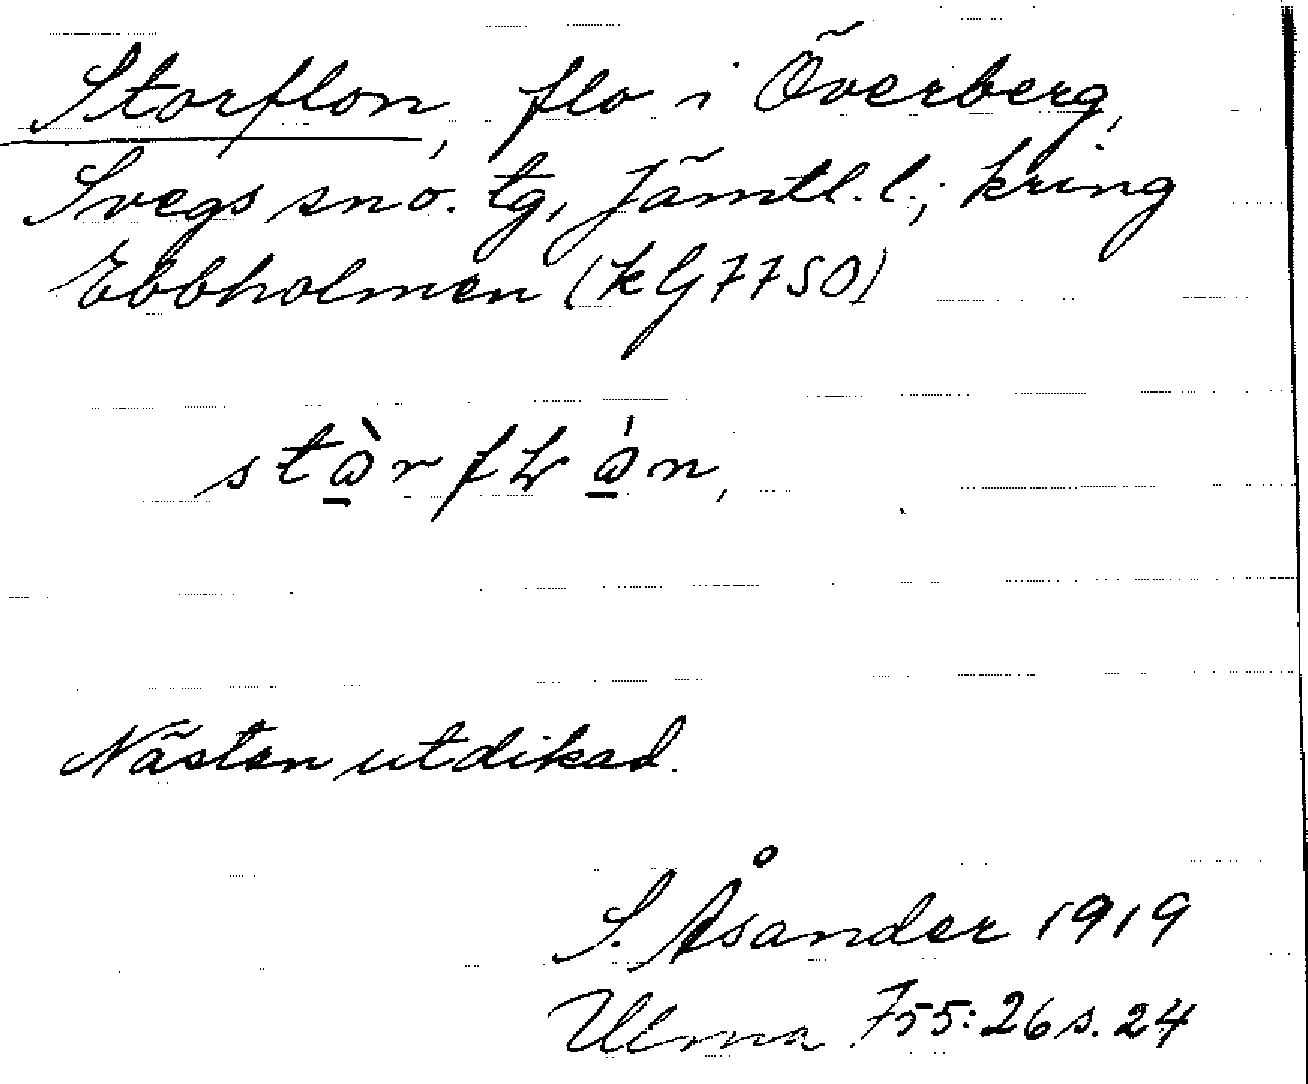 Storflon, flo i Överberg,
Svegs sno. tg, Jämtl. l.; kring
Ebbholmen (kG7750)
Nästan utdikad.
S. Åsander 1919
Ulma 755:26 s. 24